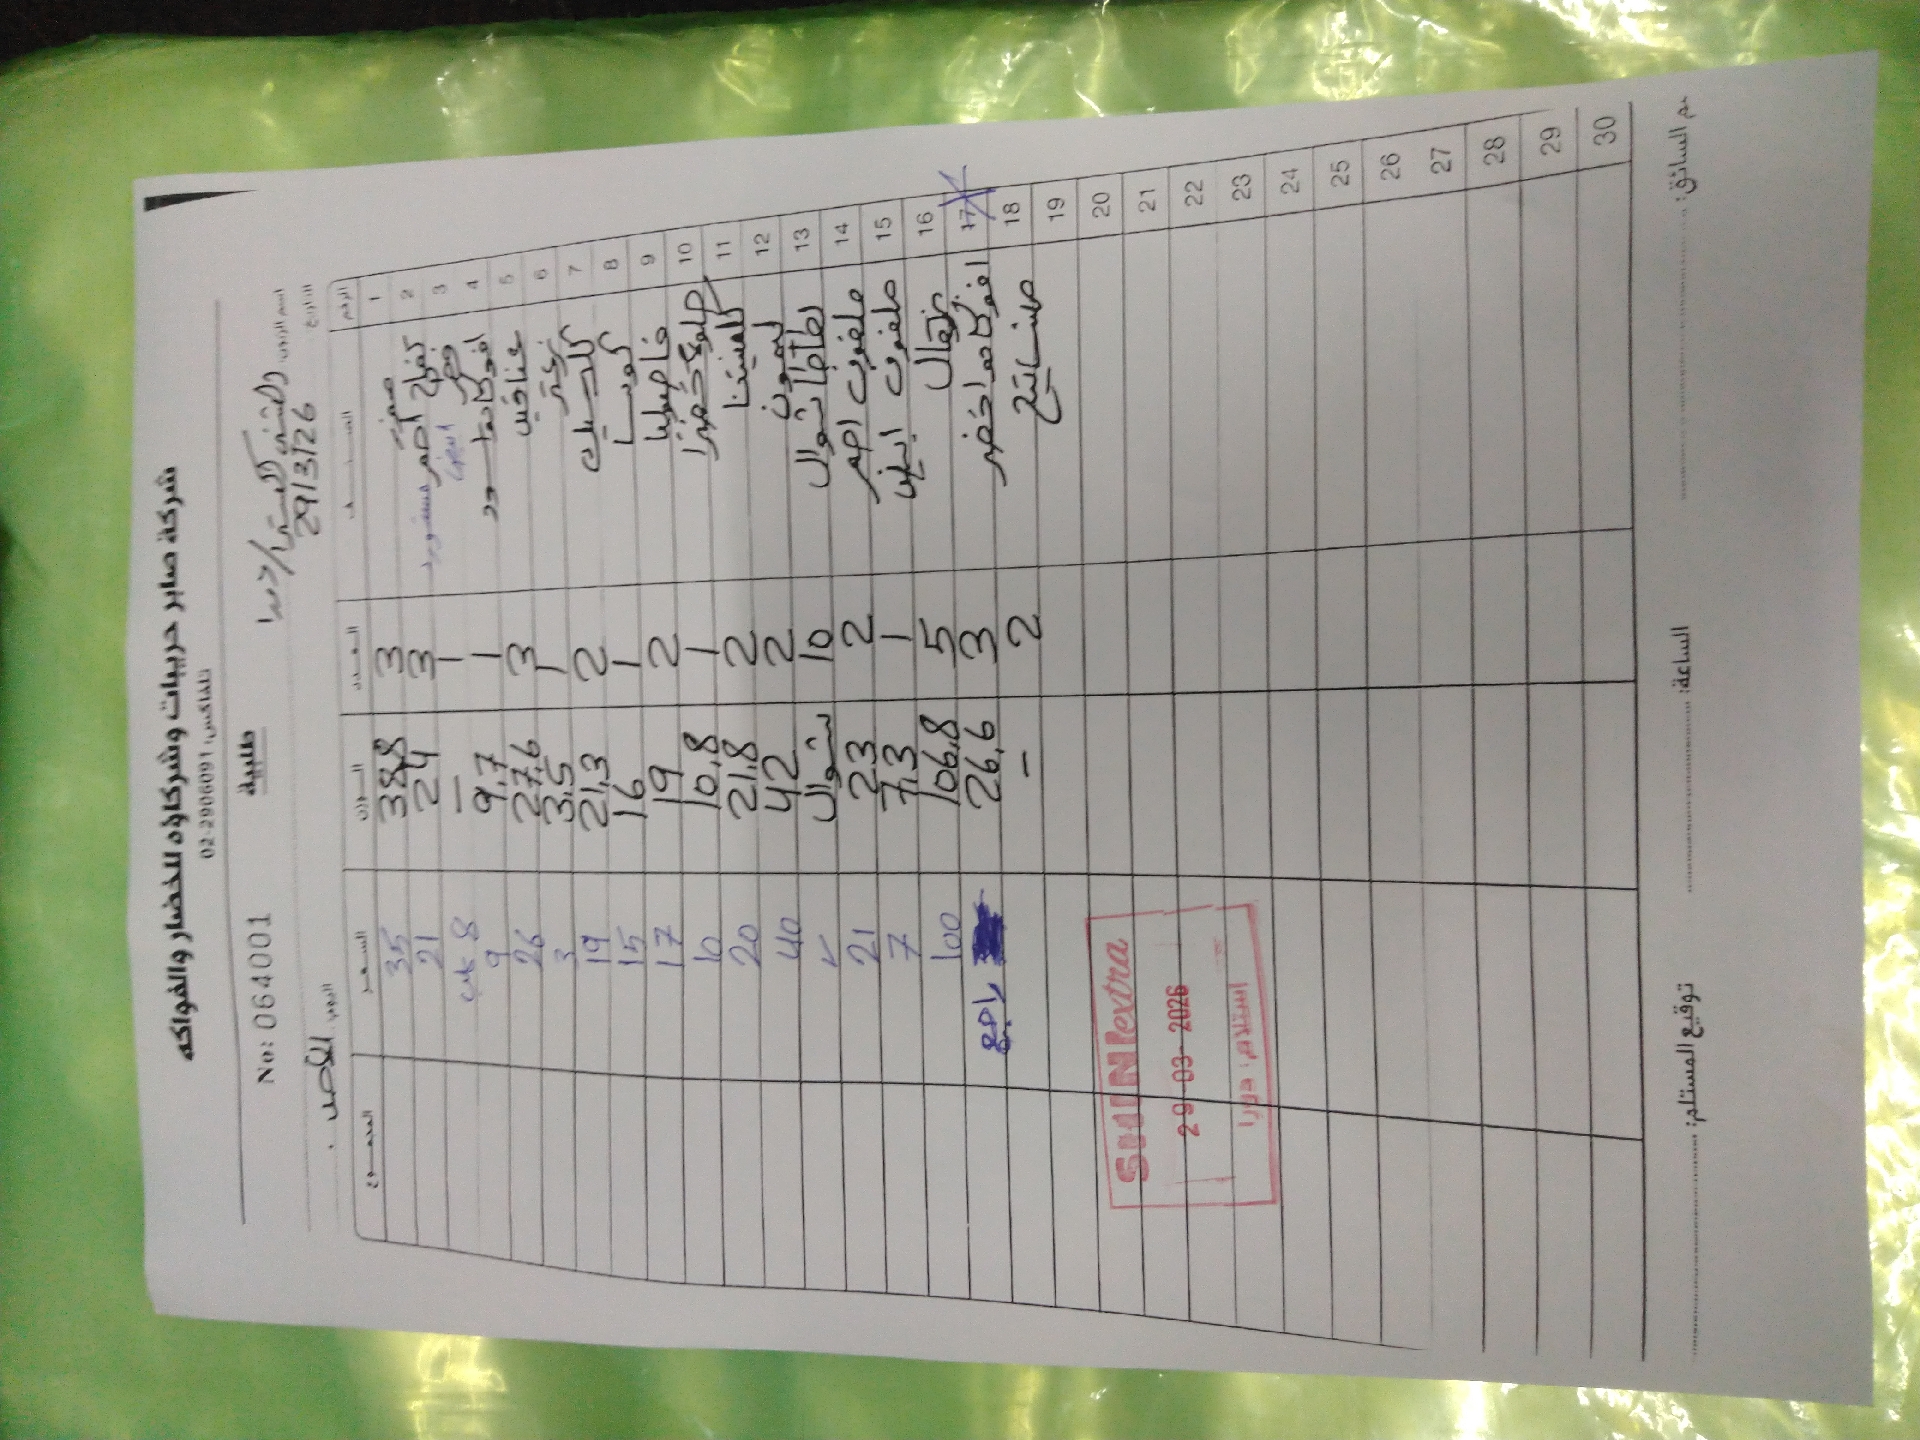 شركة صابر حريبات وشركاؤه للخضار والفواكه
تلفاكس: 02-2906091
No: 064001
طلبية
اسم الزبون:
التاريخ: 29/3/26
اليوم: الأحد
الرقم الصنف العدد الوزن السعر المجموع
1 موز 3 38,8 35
2 تفاح احمر 3 24 21
3 1 — 8
4 افوكادو 1 9,7 9
5 3 27,6 26
6 زعتر 1 3,5 3
7 2 21,3 19
8 كوسا 1 16 15
9 فاصوليا 2 19 17
10 1 10,8 10
11 كلمنتينا 2 21,8 20
12 ليمون 2 42 40
13 بطاطا شوال 10 شوال ✓
14 ملفوف احمر 2 23 21
15 ملفوف ابيض 1 7,3 7
16 برتقال 5 106,8 100
17 اخضر 3 26,6 راجع
18 2 —
19
20
21
22
23
24
25
26
27
28
29
30
SHINextra
29-03-2026
استلام: دورا
اسم السائق: الساعة: توقيع المستلم: